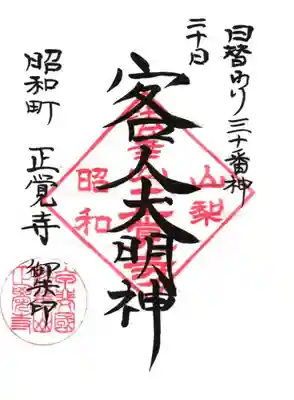 日替わり三十番神
二十日
客人大明神
山梨
昭和
昭和町 正覚寺
御朱印